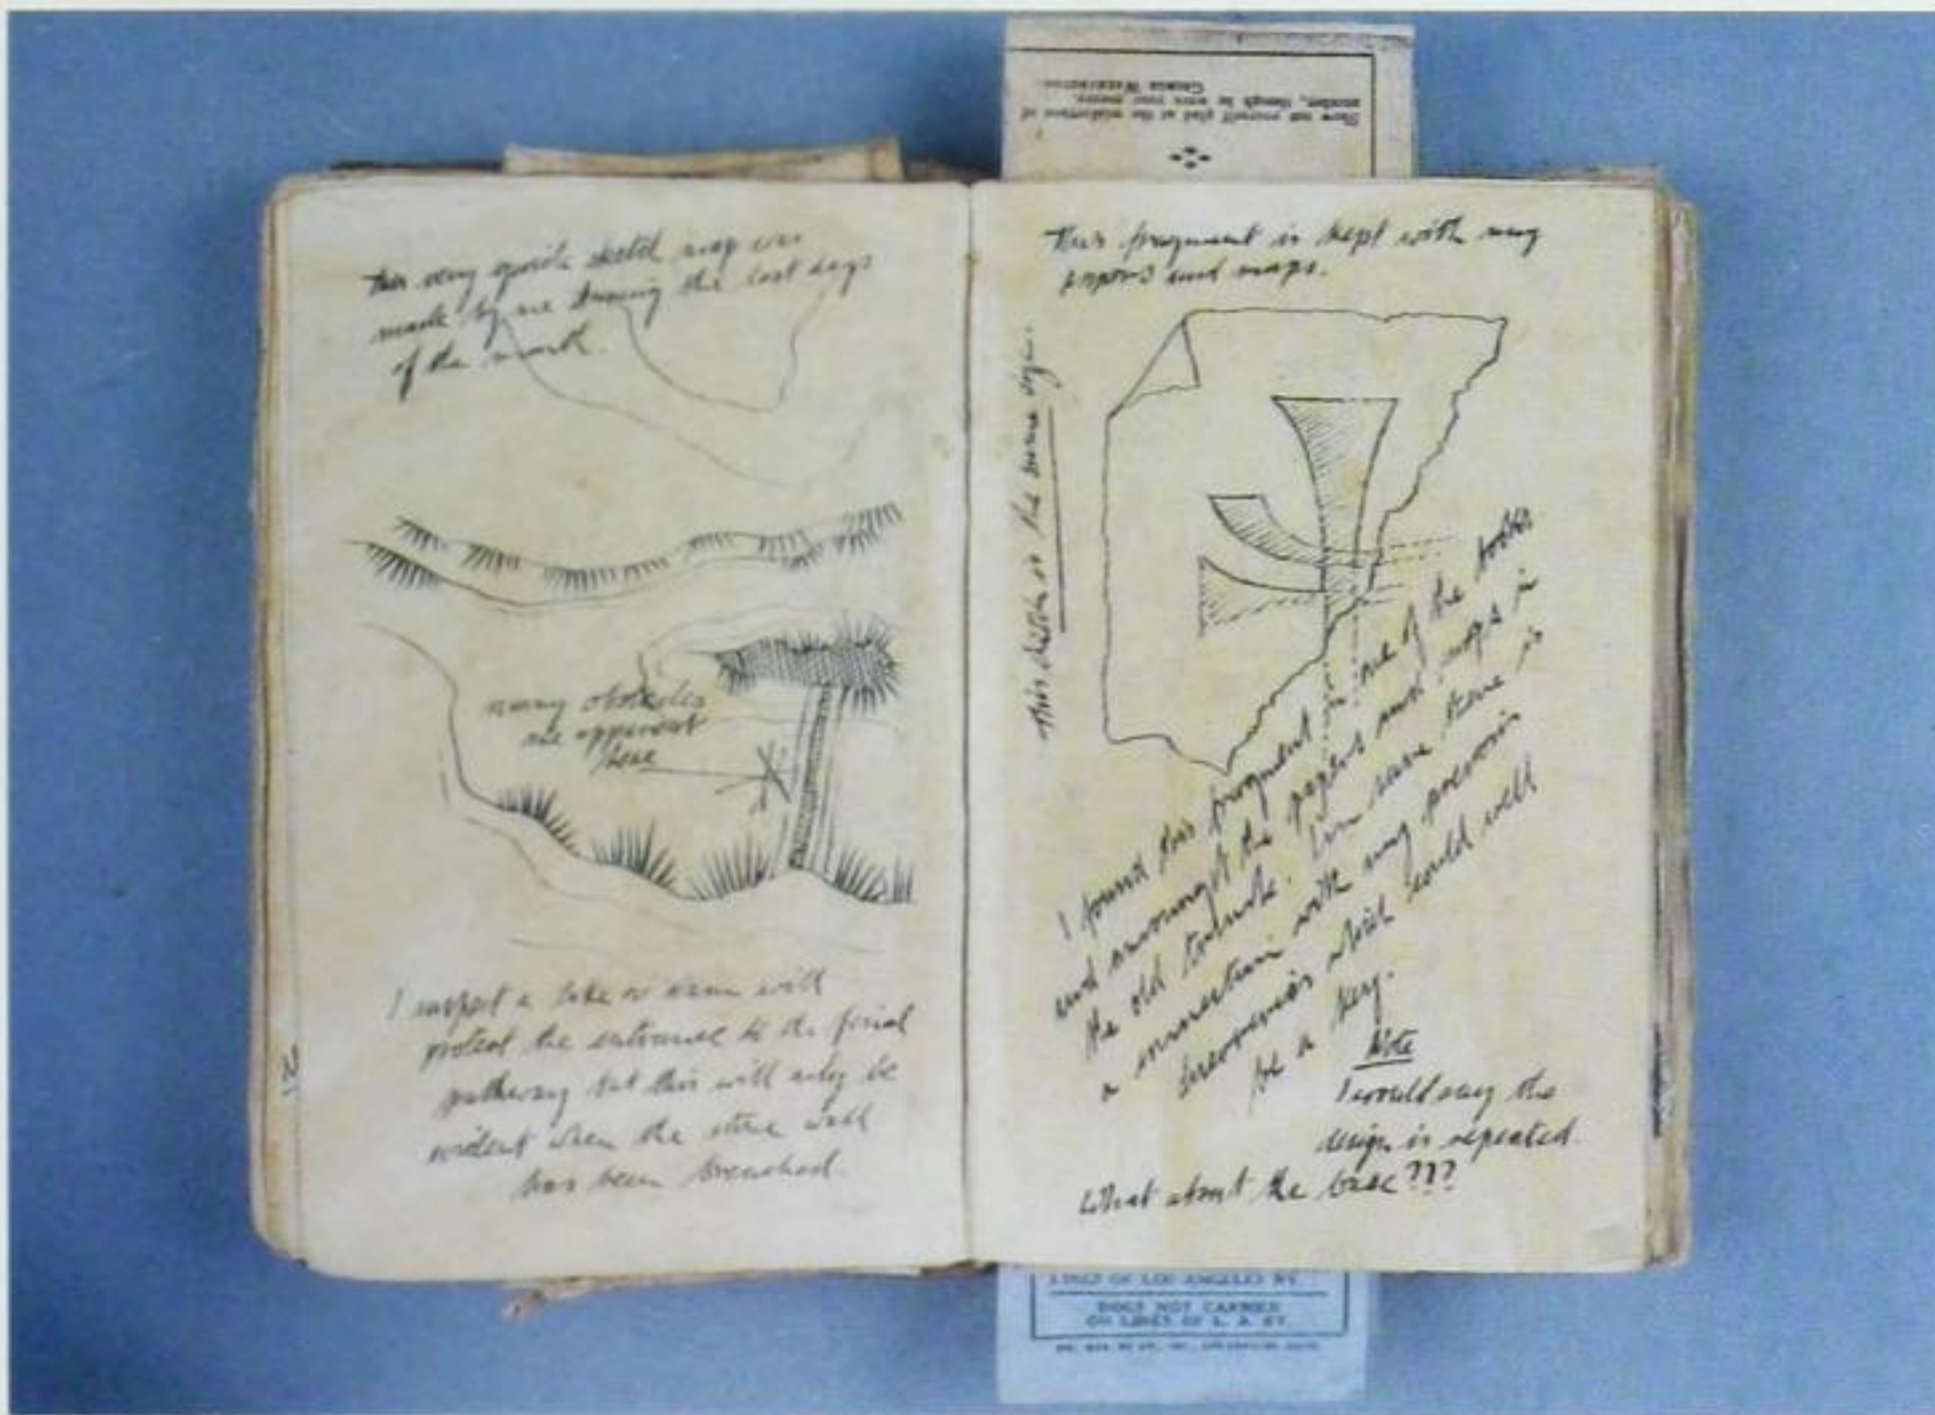 Show not yourself glad at the misfortune of
another, though he were your enemy.
George Washington
This very quick sketch map was
made by me during the last days
of the month.
many obstacles
are apparent
here
I suspect a lake or will
protect the entrance to the final
pathway but this will only be
evident when the stone wall
has been breached.
21
This fragment is kept with my
papers and maps.
this is the same sign.
I found this fragment in one of the books
and amongst the papers and maps in
the old . I'm sure there is
a connection with my previous
discoveries which could well
be a key.
Note
I would say the
design is repeated
What about the base???
LINES OF LOS ANGELES RY.
DOGS NOT CARRIED
ON LINES OF L. A. RY.